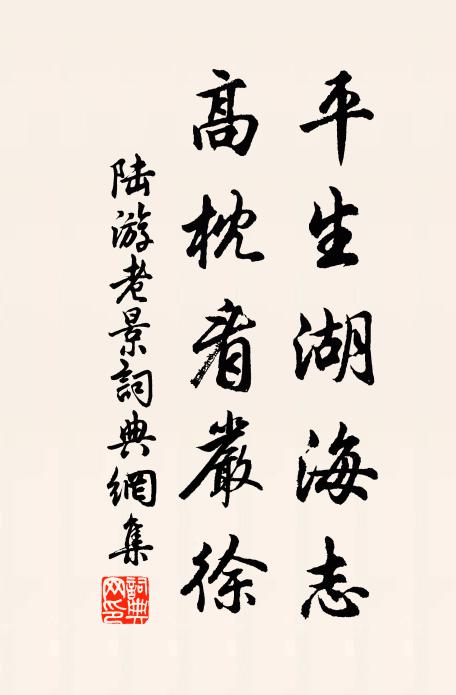 平生湖海志
高枕看嚴徐
陆游老景詞典網集
詞典网印